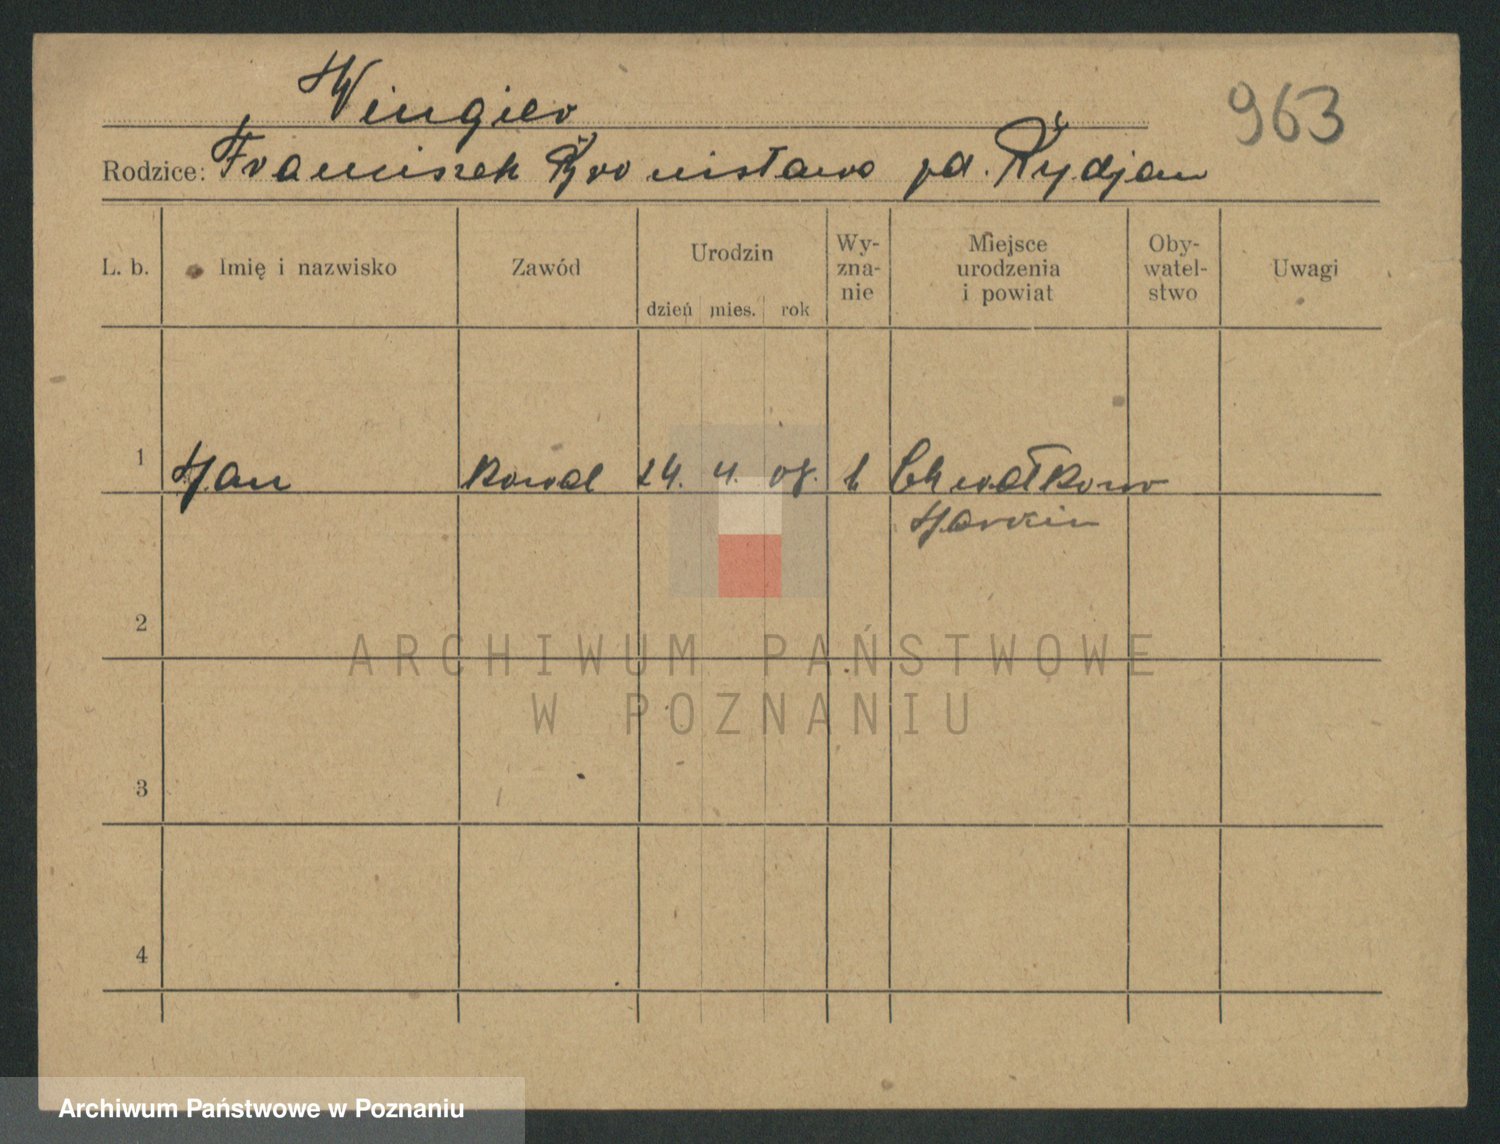 Wingier
963
Rodzice: Franciszek Bronisława zd. Rydjan
L. b. Imię i nazwisko Zawód Urodzin dzień mies. rok Wy-zna-nie Miejsce urodzenia i powiat Oby-watel-stwo Uwagi
1 Jan kowal 24. 4. 08. k Chwałkowo
Jarocin
2
ARCHIWUM PAŃSTWOWE
W POZNANIU
3
4
Archiwum Państwowe w Poznaniu